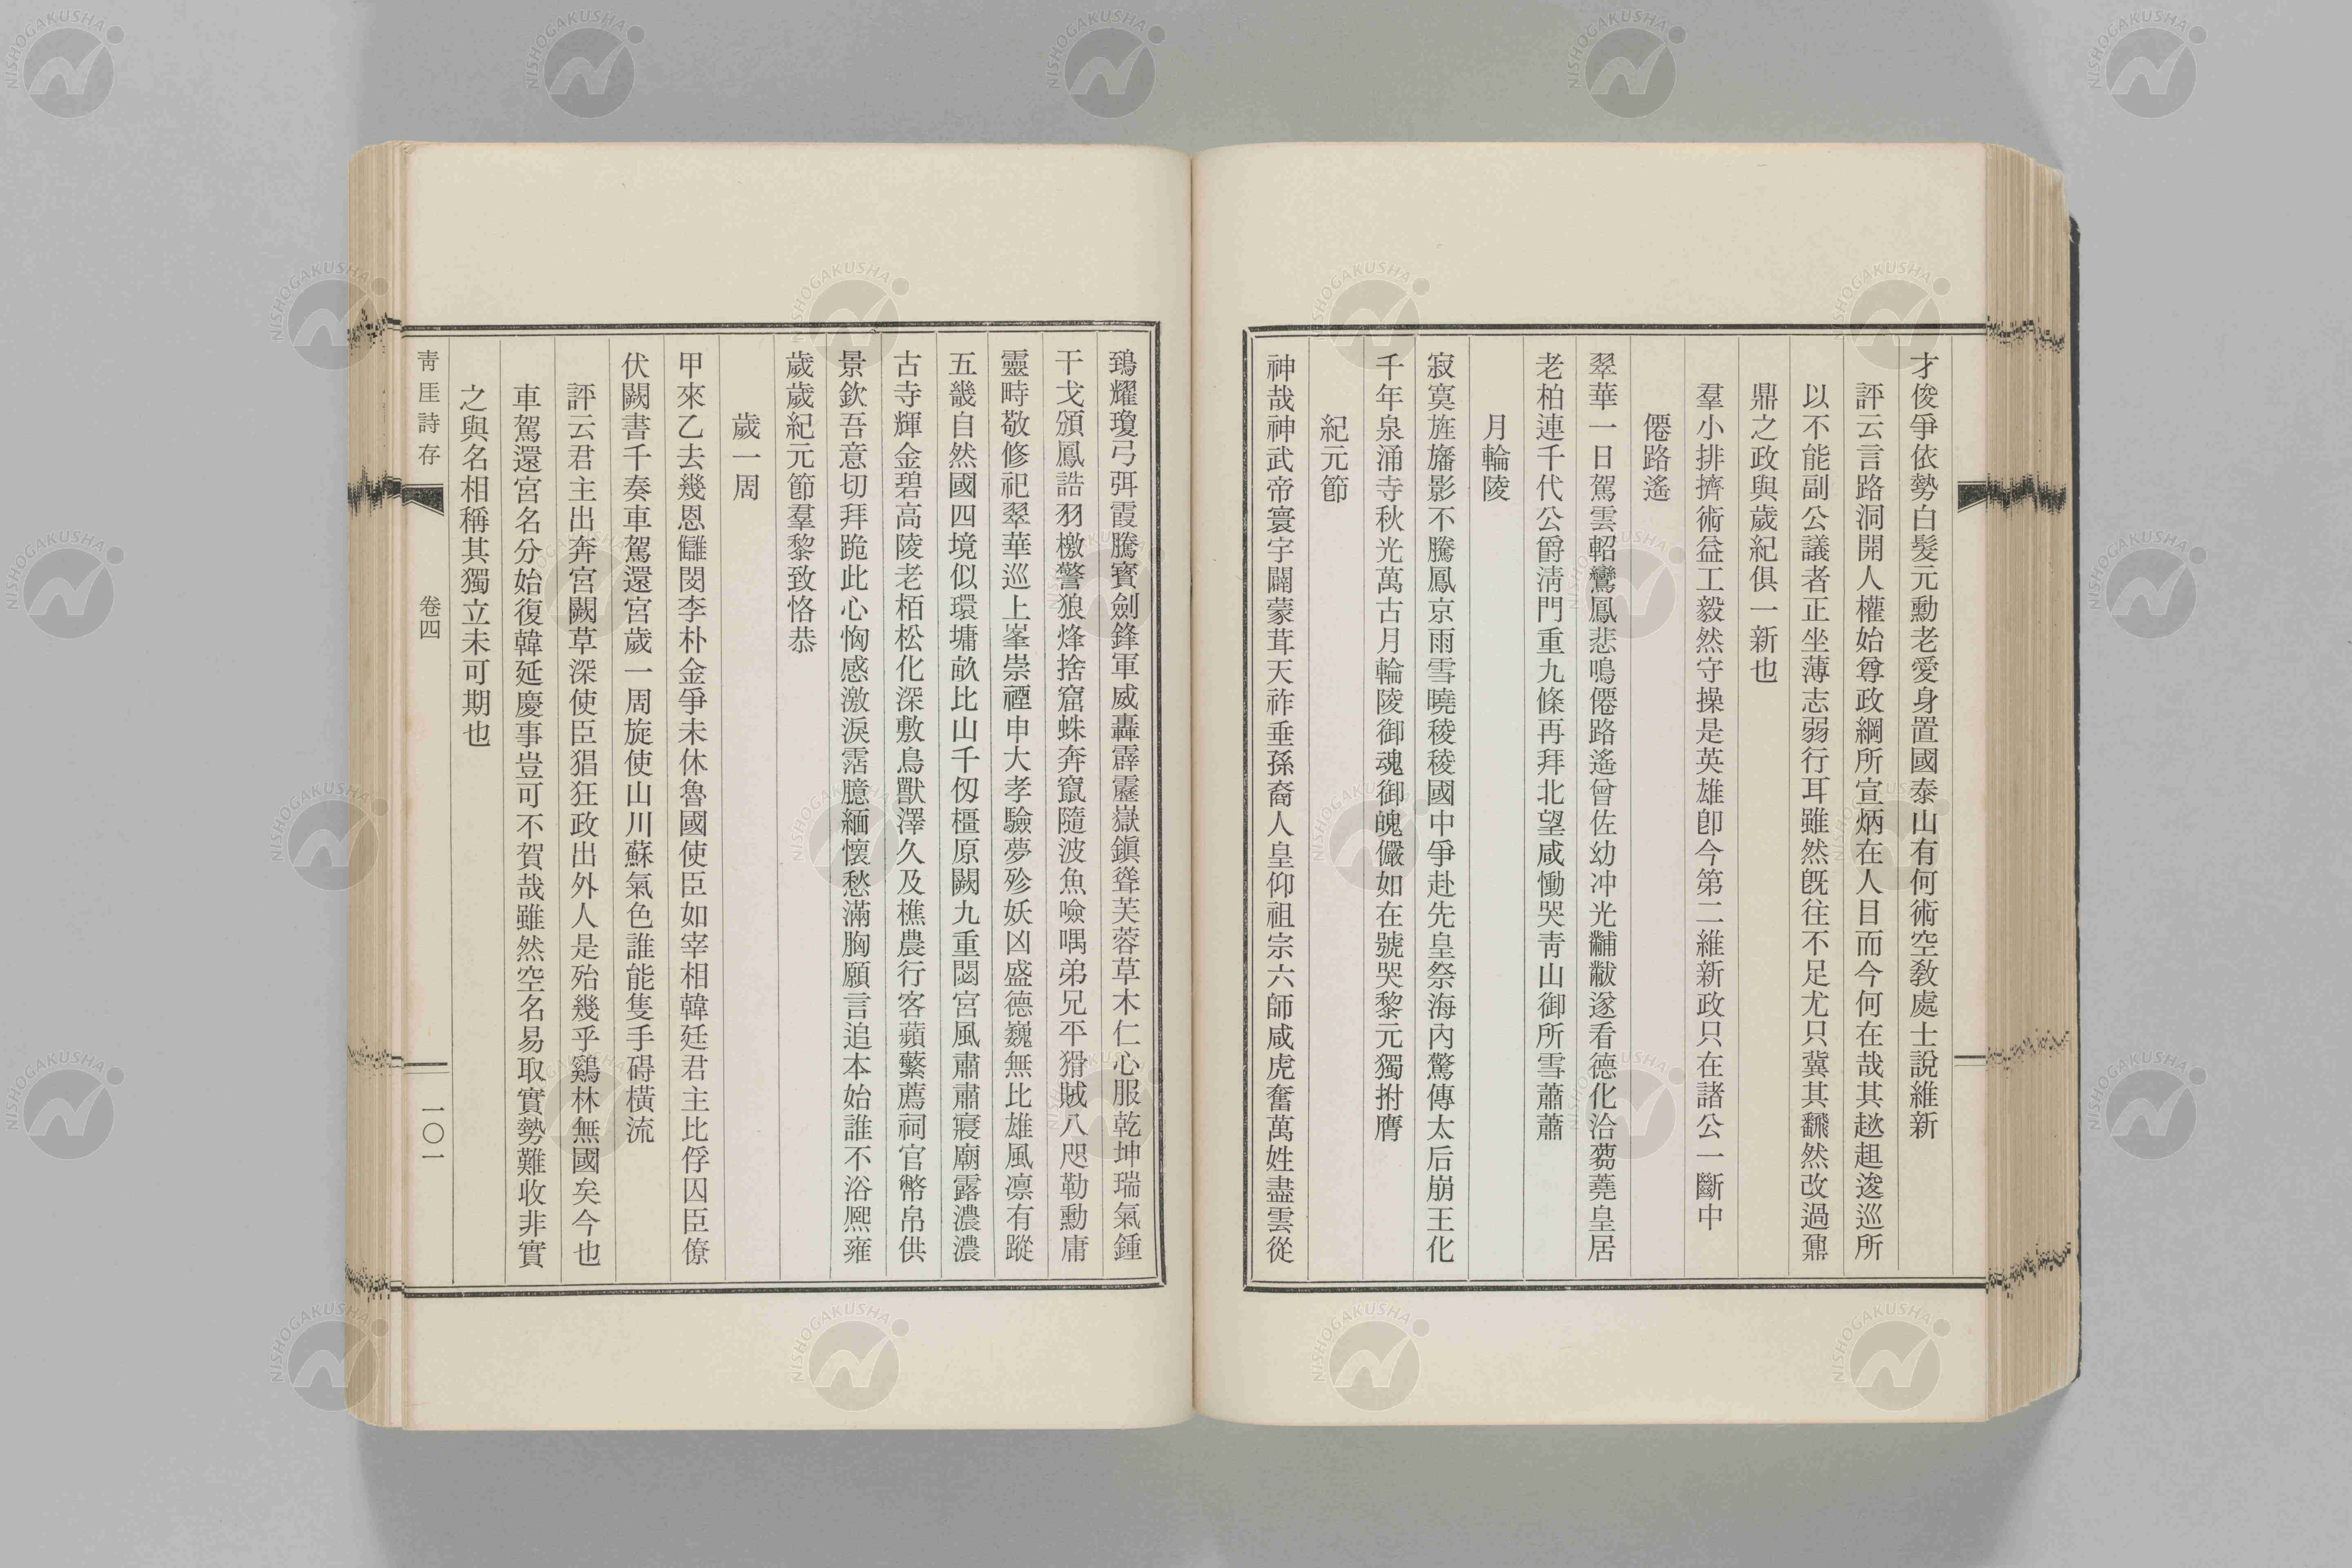 才俊爭依勢白髮元勳老愛身置國泰山有何術空敎處士說維新
評云言路洞開人權始尊政綱所宣炳在人目而今何在哉其趑趄逡巡所
以不能副公議者正坐薄志弱行耳雖然旣往不足尤只冀其飜然改過鼐
鼎之政與歲紀俱一新也
羣小排擠術益工毅然守操是英雄卽今第二維新政只在諸公一斷中
僊路遙
翠華一日駕雲軺鸞鳳悲鳴僊路遙曾佐幼冲光黼黻遂看德化洽蒭蕘皇居
老柏連千代公爵淸門重九條再拜北望咸慟哭靑山御所雪蕭蕭
月輪陵
寂寞旌旛影不騰鳳京雨雪曉稜稜國中爭赴先皇祭海內驚傳太后崩王化
千年泉涌寺秋光萬古月輪陵御魂御魄儼如在號哭黎元獨拊膺
紀元節
神哉神武帝寰宇闢蒙茸天祚垂孫裔人皇仰祖宗六師咸虎奮萬姓盡雲從
鵄耀瓊弓弭霞騰寶劍鋒軍威轟霹靂嶽鎭聳芙蓉草木仁心服乾坤瑞氣鍾
干戈頒鳳誥羽檄警狼烽捨窟蛛奔竄隨波魚噞喁弟兄平猾賊八咫勒勳庸
靈畤敬修祀翠華巡上峯崇禋申大孝驗夢殄妖凶盛德巍無比雄風凛有蹤
五畿自然國四境似環墉畝比山千仭橿原闕九重閟宮風肅肅寢廟露濃濃
古寺輝金碧高陵老栢松化深敷鳥獸澤久及樵農行客蘋蘩薦祠官幣帛供
景欽吾意切拜跪此心恟感激淚霑臆緬懷愁滿胸願言追本始誰不浴熙雍
歲歲紀元節羣黎致恪恭
歲一周
甲來乙去幾恩讎閔李朴金爭未休魯國使臣如宰相韓廷君主比俘囚臣僚
伏闕書千奏車駕還宮歲一周旋使山川蘇氣色誰能隻手碍橫流
評云君主出奔宮闕草深使臣猖狂政出外人是殆幾乎鷄林無國矣今也
車駕還宮名分始復韓延慶事豈可不賀哉雖然空名易取實勢難收非實
之與名相稱其獨立未可期也
靑厓詩存
卷四
一〇一
NISHOGAKUSHA